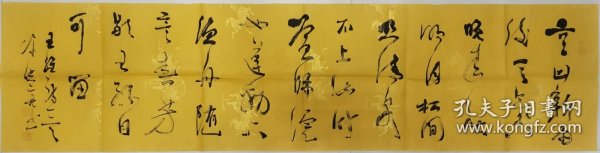 空山新雨
后天气
晚来秋
明月松间
照清泉
石上流竹
喧归浣
女莲动下
渔舟随
意春芳
歇王孙自
可留
王维诗一首
孔夫子旧书网
www.kongfz.com